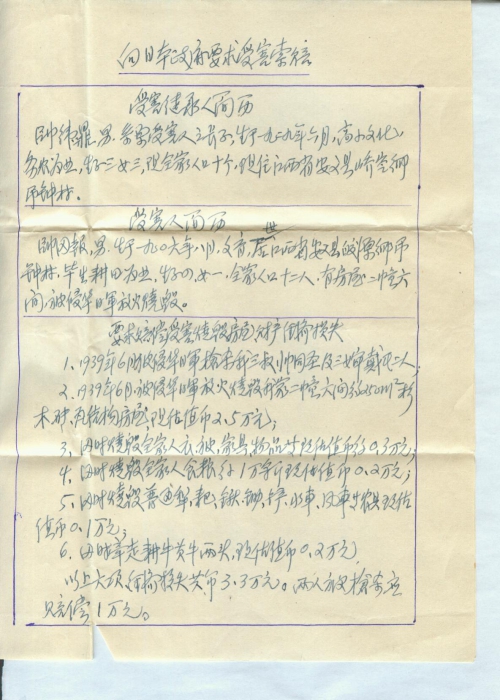 向日本政府要求受害索赔
受害继承人简历
帅纬鼎,男,系受害人之长子,生于一九二九年六月,高小文化,
务农为业,生子二女三,现全家人口十个,现住江西省安义县峤岭乡
帅钟村。
受害人简历
帅因报,男,生于一九〇六年八月,文盲,世居江西省安义县
钟村,毕生耕田为业,生子四,女一,全家人口十二人,有房屋二幢六
间,被侵华日军放火烧毁。
要求经济受害烧毁房屋财产估价损失
1、1939年6月被侵华日军枪杀我三叔帅及三人,
2、1939年6月,被侵华日军放火烧毁我家二幢六间约250m²杉
木砖瓦结构房屋,现估值币2.5万元;
3、同时烧毁全家人衣被,家具,物品等现估值币约0.3万元;
4、同时烧毁全家人食粮约1万斤现估值币0.2万元;
5、同时烧毁普通犁、耙、铁锄、铲、水车、风车等农具现估
值币0.1万元;
6、同时牵走耕牛黄牛两头,现估值币0.2万元,
以上六项估价损失共币3.3万元。两人被枪杀应
赔偿1万元。